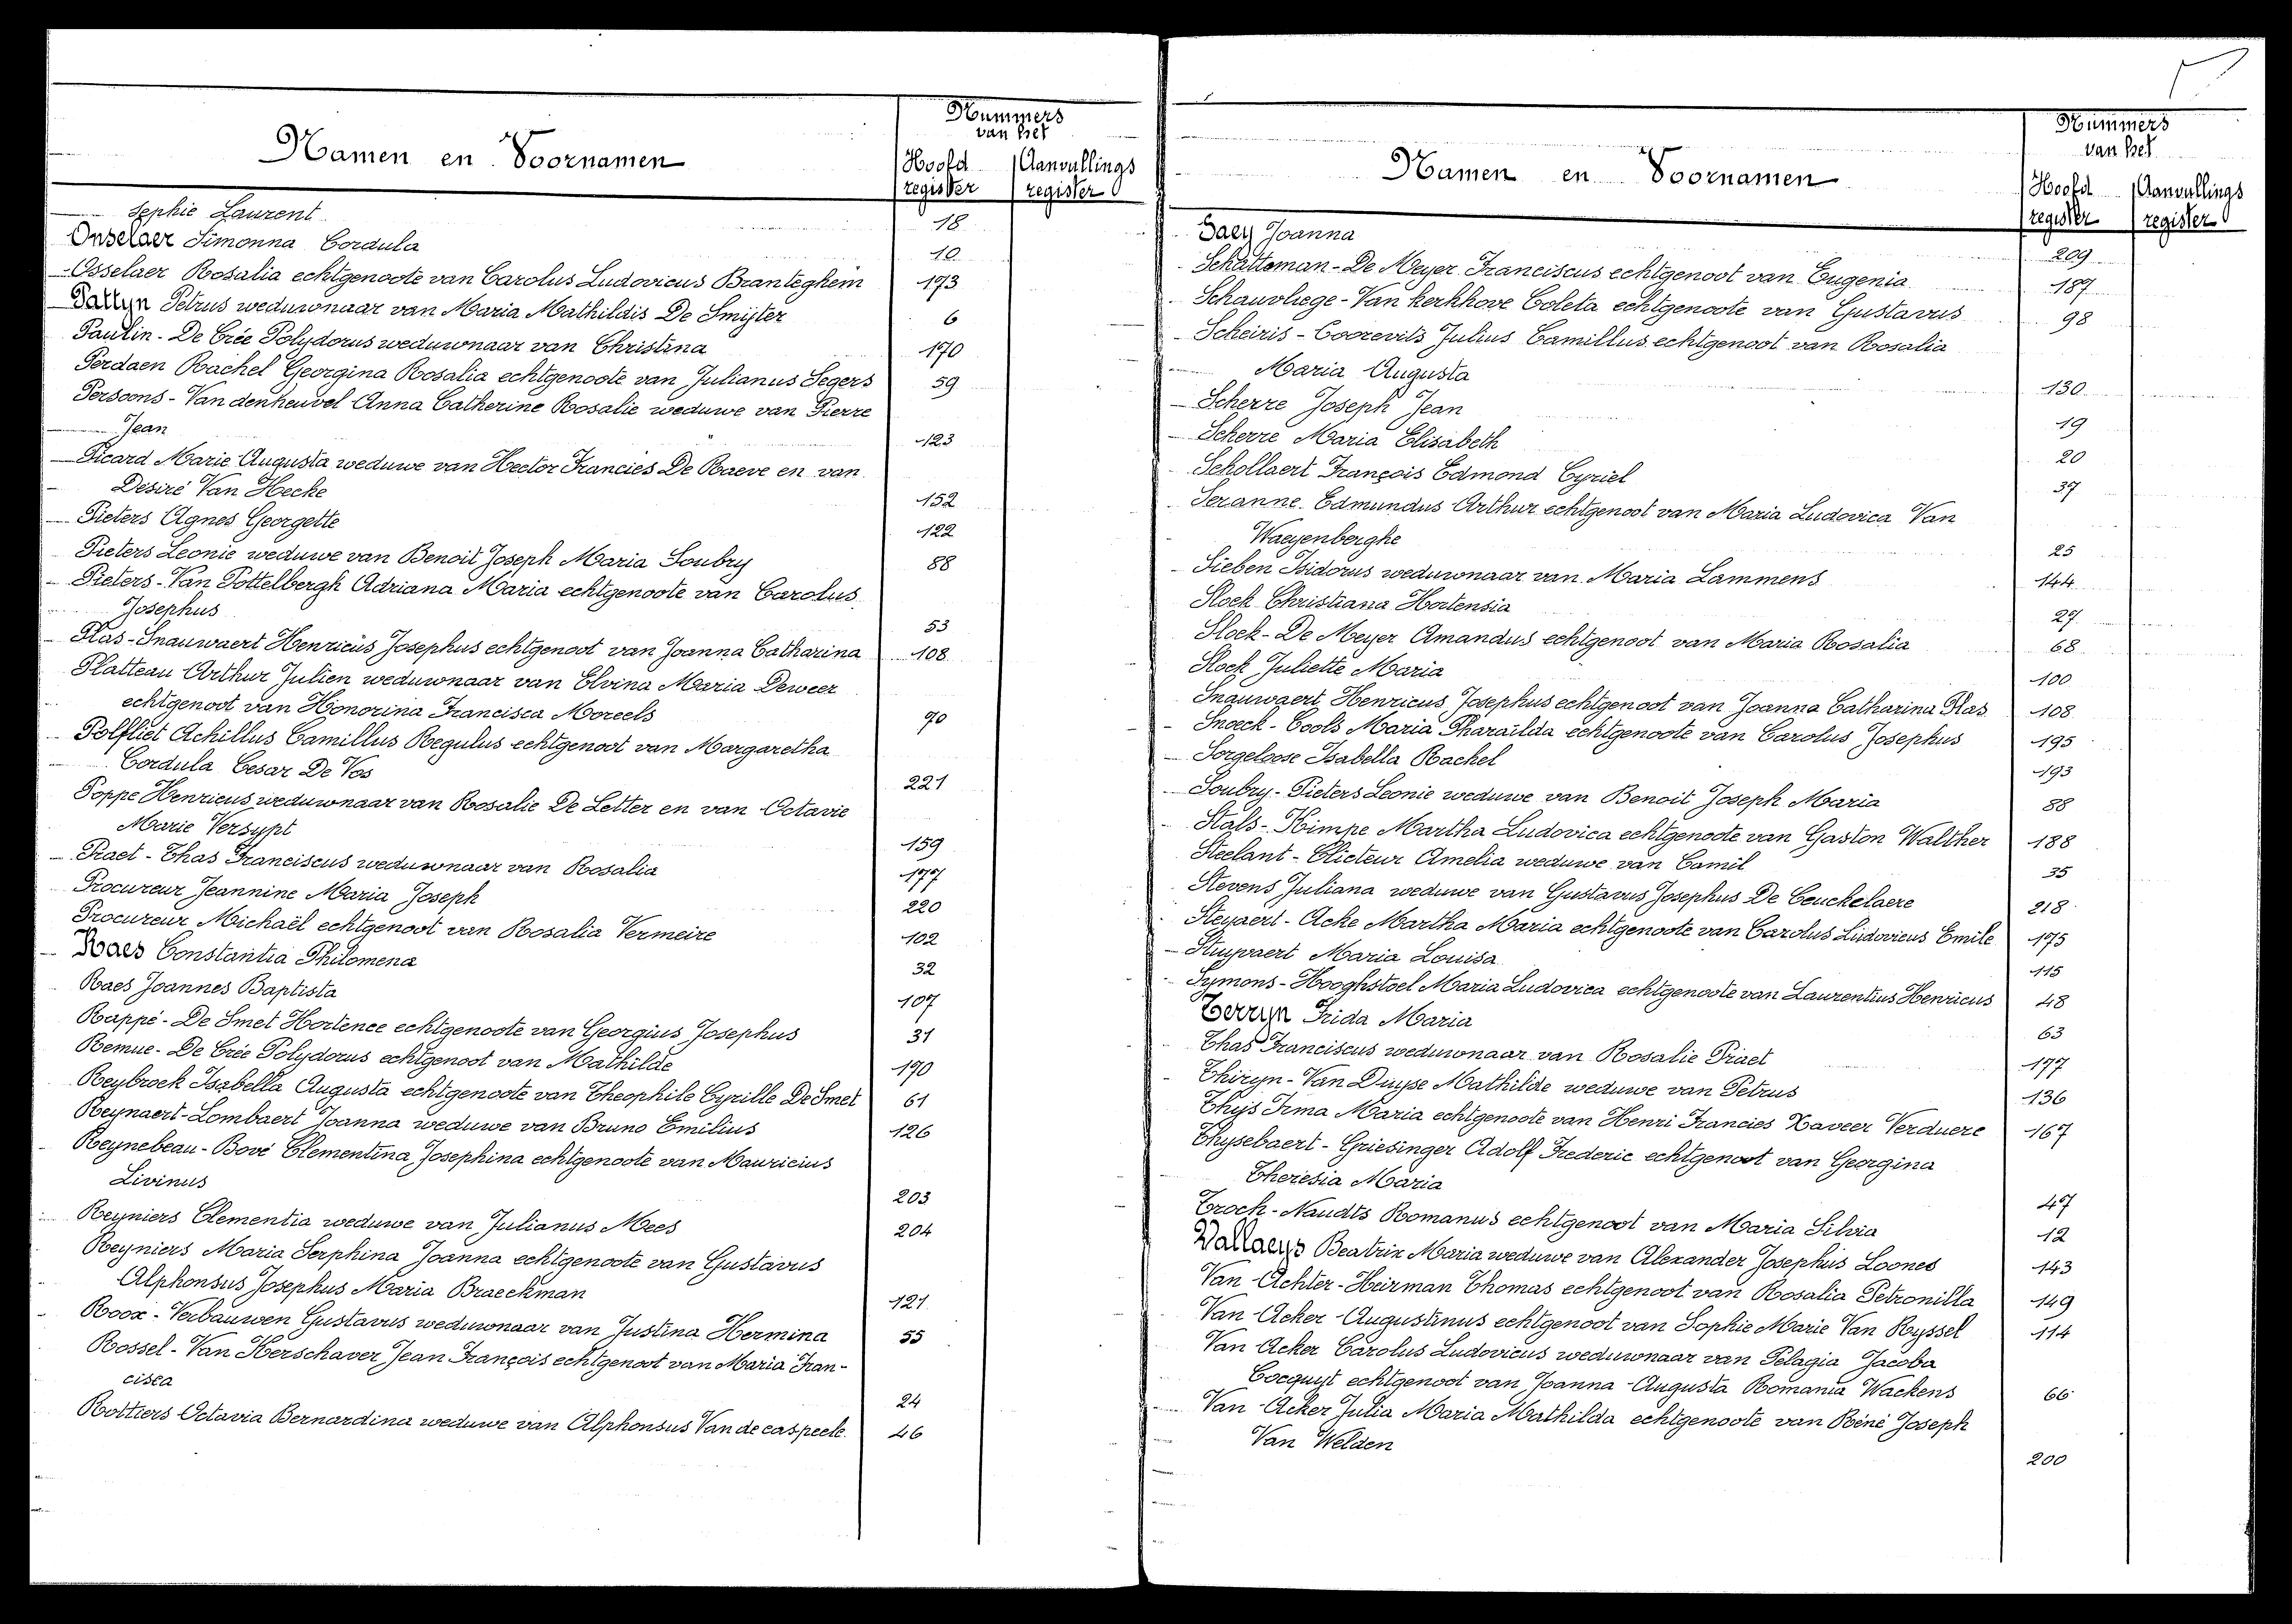 Namen en Voornamen
Nummers
van het
Hoofd Aanvullings
register register
Sophie Laurent 18
Onselaer Simonna Cordula 10
Osselaer Rosalia echtgenoote van Carolus Ludovicus Branteghem 173
Pattyn Petrus weduwnaar van Maria Mathildis De Smijter 6
Paulin - De Crée Polydorus weduwnaar van Christina 170
Perdaen Rachel Georgina Rosalia echtgenoote van Julianus Segers 59
Persoons - Van denheuvel Anna Catherine Rosalie weduwe van Pierre
Jean 123
Picard Marie Augusta weduwe van Hector Francies De Baeve en van
Désiré Van Hecke 152
Pieters Agnes Georgette 122
Pieters Leonie weduwe van Benoit Joseph Maria Soubry 88
Pieters - Van Pottelbergh Adriana Maria echtgenoote van Carolus
Josephus 53
Plas - Snauwaert Henricus Josephus echtgenoot van Joanna Catharina 108
Platteau Arthur Julien weduwnaar van Elvina Maria Deweer
echtgenoot van Honorina Francisca Moreels 90
Polfliet Achillus Camillus Regulus echtgenoot van Margaretha
Cordula Cesar De Vos 221
Poppe Henricus weduwnaar van Rosalie De Letter en van Octavie
Marie Versypt 159
Praet - Thas Franciscus weduwnaar van Rosalia 177
Procureur Jeannine Maria Joseph 220
Procureur Michaël echtgenoot van Rosalia Vermeire 102
Raes Constantia Philomena 32
Raes Joannes Baptista 107
Rappé - De Smet Hortence echtgenoote van Georgius Josephus 31
Remue - De Crée Polydorus echtgenoot van Mathilde 170
Reybroek Isabella Augusta echtgenoote van Theophile Cyrille De Smet 61
Reynaert - Lombaert Joanna weduwe van Bruno Emilius 126
Reynebeau - Bové Clementina Josephina echtgenoote van Mauricius
Livinus 203
Reyniers Clementia weduwe van Julianus Mees 204
Reyniers Maria Serphina Joanna echtgenoote van Gustavus
Alphonsus Josephus Maria Braeckman 121
Roox - Verbauwen Gustavus weduwnaar van Justina Hermina 55
Rossel - Van Kerschaver Jean François echtgenoot van Maria Fran-
cisca 24
Rottiers Octavia Bernardina weduwe van Alphonsus Van de caspeele 46
Namen en Voornamen
Nummers
van het
Hoofd Aanvullings
register register
Saey Joanna 209
Schatteman - De Meyer Franciscus echtgenoot van Eugenia 187
Schauvliege - Van kerkhove Coleta echtgenoote van Gustavus 98
Scheiris - Coorevits Julius Camillus echtgenoot van Rosalia
Maria Augusta 130
Scherre Joseph Jean 19
Scherre Maria Elisabeth 20
Schollaert François Edmond Cyriel 37
Seranne Edmundus Arthur echtgenoot van Maria Ludovica Van
Waeyenberghe 25
Sieben Isidorus weduwnaar van Maria Lammens 144
Slock Christiana Hortensia 27
Slock - De Meyer Amandus echtgenoot van Maria Rosalia 68
Slock Juliette Maria 100
Snauwaert Henricus Josephus echtgenoot van Joanna Catharina Plas 108
Snoeck - Cools Maria Pharaïlda echtgenoote van Carolus Josephus 195
Sorgeloose Isabella Rachel 193
Soubry - Pieters Leonie weduwe van Benoit Joseph Maria 88
Stals - Rimpe Martha Ludovica echtgenoote van Gaston Walther 188
Steelant - Clicteur Amelia weduwe van Camil 35
Stevens Juliana weduwe van Gustavus Josephus De Ceuckelaere 218
Steyaert - Acke Martha Maria echtgenoote van Carolus Ludovicus Emile 175
Stuyvaert Maria Louisa 115
Symons - Hooghstoel Maria Ludovica echtgenoote van Laurentius Henricus 48
Terryn Frida Maria 63
Thas Franciscus weduwnaar van Rosalie Praet 177
Thiryn - Van Duyse Mathilde weduwe van Petrus 136
Thijs Irma Maria echtgenoote van Henri Francies Xaveer Verduere 167
Thysebaert - Griesinger Adolf Frederic echtgenoot van Georgina
Theresia Maria 47
Trock - Naudts Romanus echtgenoot van Maria Silvia 12
Vallaeys Beatrix Maria weduwe van Alexander Josephus Loones 143
Van Achter - Heirman Thomas echtgenoot van Rosalia Petronilla 149
Van Acker Augustinus echtgenoot van Sophie Marie Van Ryssel 114
Van Acker Carolus Ludovicus weduwnaar van Pelagia Jacoba
Cocquyt echtgenoot van Joanna Augusta Romania Wackens 66
Van Acker Julia Maria Mathilda echtgenoote van Réné Joseph
Van Welden 200